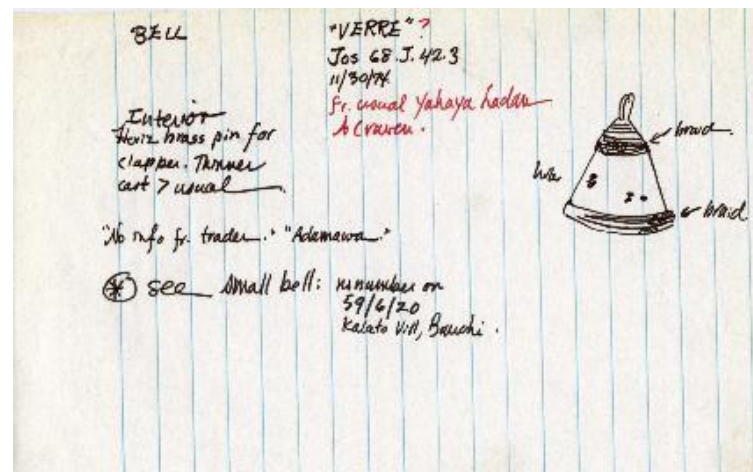 BELL
"VERRE"?
Jos 68.J.42.3
11/30/74
fr. usual Yahaya
Interior
Horiz brass pin for
clapper. Thinner
cast > usual
braid
braid
"No info fr. trader." "Adamawa."
* see small bell: no number on
59/6/20
Kalato Vill, Bauchi.